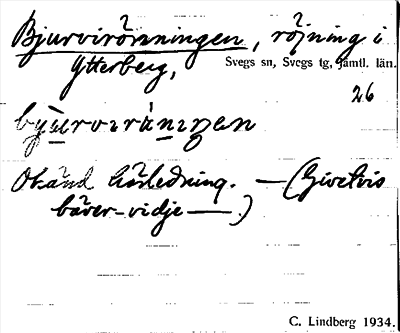 Bjurvirönningen, röjning i
Ytterberg, Svegs sn, Svegs tg, Jämtl. län.
26
Okänd härledning. — (Givetvis
bäver-vidje —.)
C. Lindberg 1934.